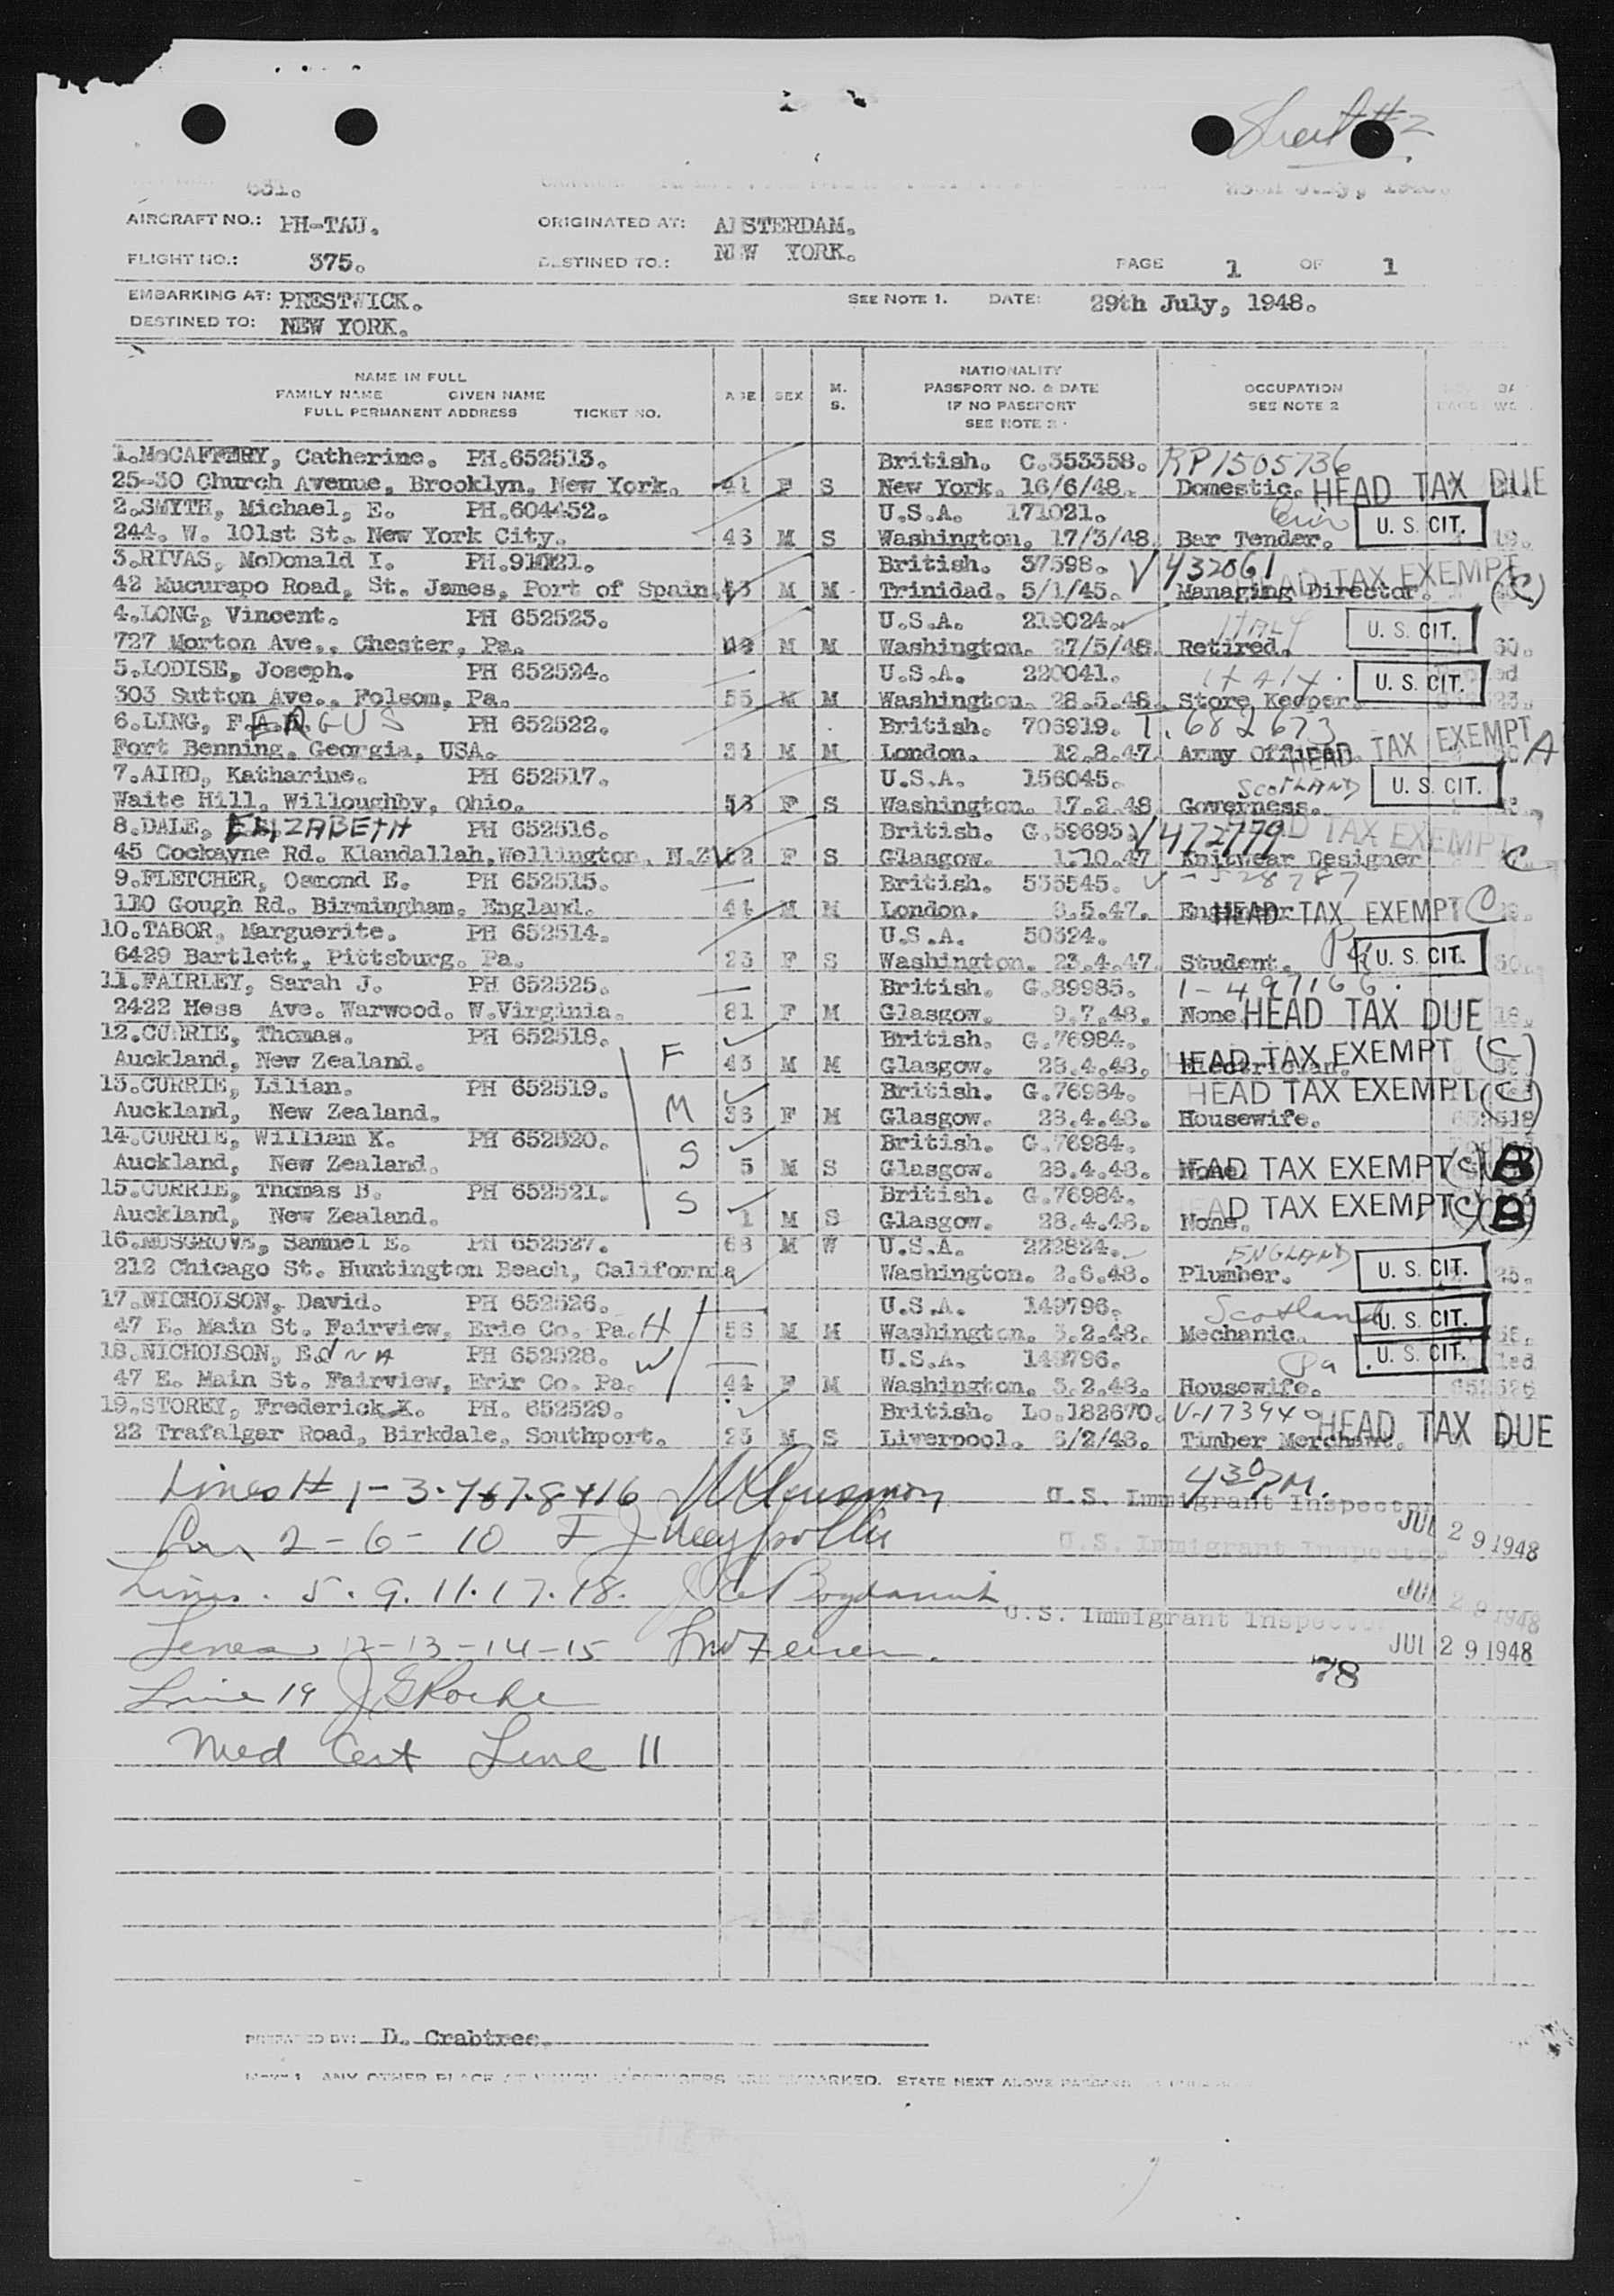 Sheet #2
631.
AIRCRAFT NO.: PH-TAU. ORIGINATED AT: AMSTERDAM.
FLIGHT NO.: 375. DESTINED TO.: NEW YORK. PAGE 1 OF 1
EMBARKING AT: PRESTWICK. SEE NOTE 1. DATE: 29th July, 1948.
DESTINED TO: NEW YORK.
NAME IN FULL
FAMILY NAME GIVEN NAME
FULL PERMANENT ADDRESS TICKET NO.
AGE SEX M. S.
NATIONALITY
PASSPORT NO. & DATE
IF NO PASSPORT
SEE NOTE
OCCUPATION
SEE NOTE 2
1.McCAFFERY, Catherine. PH.652513. British. C.353358. RP1505736
25-30 Church Avenue, Brooklyn, New York. 41 F S New York. 16/6/48. Domestic. HEAD TAX DUE
2.SMYTH, Michael, E. PH.604452. U.S.A. 171021.
244. W. 101st St. New York City. 43 M S Washington. 17/3/48. Bar Tender. U. S. CIT.
3.RIVAS, McDonald I. British. 37598. V432061
42 Mucurapo Road, St. James, Port of Spain. M M Trinidad. 5/1/45. Managing Director. HEAD TAX EXEMPT (C)
4.LONG, Vincent. PH 652523. U.S.A. 219024. ITALY
727 Morton Ave., Chester, Pa. M M Washington. 27/5/48. Retired. U. S. CIT.
5.LODISE, Joseph. PH 652524. U.S.A. 220041.
303 Sutton Ave., Folsom, Pa. 55 M M Washington. 28.5.48. Store Keeper. U. S. CIT.
6.LING, FEARGUS PH 652522. British. 706919. T.682673
Fort Benning, Georgia, USA. M M London. 12.8.47. Army Officer. HEAD TAX EXEMPT A
7.AIRD, Katharine. PH 652517. U.S.A. 156045. SCOTLAND
Waite Hill, Willoughby, Ohio. 53 F S Washington. 17.2.48 Governess. U. S. CIT.
8.DALE, ELIZABETH PH 652516. British. G.59695. V472779
45 Cockayne Rd. Klandallah, Wellington. N.Z F S Glasgow. 1.10.47 Knitwear Designer HEAD TAX EXEMPT C
9.FLETCHER, Osmond E. PH 652515. British. 535545. V-528787
110 Gough Rd. Birmingham. England. 44 M M London. 8.5.47. Engineer HEAD TAX EXEMPT C
10.TABOR, Marguerite. PH 652514. U.S.A. 50324.
6429 Bartlett, Pittsburg. Pa. 23 F S Washington. 23.4.47. Student. Pa U. S. CIT.
11.FAIRLEY, Sarah J. PH 652525. British. G.89985. 1-497166.
2422 Hess Ave. Warwood. W.Virginia. 81 F M Glasgow. 9.7.48. None HEAD TAX DUE
12.CURRIE, Thomas. PH 652518. British. G.76984.
Auckland, New Zealand. F 43 M M Glasgow. 28.4.48. Electrician. HEAD TAX EXEMPT (C)
13.CURRIE, Lilian. PH 652519. British. G.76984. HEAD TAX EXEMPT (C)
Auckland, New Zealand. M F M Glasgow. 28.4.48. Housewife.
14.CURRIE, William K. PH 652520. British. G.76984.
Auckland, New Zealand. S 5 M S Glasgow. 28.4.48. None. HEAD TAX EXEMPT (C)
15.CURRIE, Thomas B. PH 652521. British. G.76984.
Auckland, New Zealand. S 1 M S Glasgow. 28.4.48. None. HEAD TAX EXEMPT (C)
16.MUSGROVE, Samuel E. PH 652527. 68 M W U.S.A. 222824. ENGLAND
212 Chicago St. Huntington Beach, California Washington. 2.6.48. Plumber. U. S. CIT.
17.NICHOLSON, David. PH 652526. U.S.A. 149796. Scotland
47 E. Main St. Fairview, Erie Co. Pa. H 56 M M Washington. 3.2.48. Mechanic. U. S. CIT.
18.NICHOLSON, EDNA PH 652528. W U.S.A. 149796. Pa U. S. CIT.
47 E. Main St. Fairview, Erir Co. Pa. 44 F M Washington. 3.2.48. Housewife.
19.STOREY, Frederick K. PH. 652529. British. Lo.182670. V-173940
22 Trafalgar Road, Birkdale, Southport. 23 M S Liverpool. 6/2/48. Timber Merchant. HEAD TAX DUE
Lines # 1-3-4-7-8+16 U.S. Immigrant Inspector 430PM.
2-6-10 U.S. Immigrant Inspector JUL 29 1948
Lines. 5. 9. 11. 17. 18. U.S. Immigrant Inspector JUL 29 1948
Lines 12-13-14-15 JUL 29 1948
Line 19 J G Roche 78
Med Cert Line 11
PREPARED BY: D. Crabtree.
NOTE 1. ANY OTHER PLACE AT WHICH PASSENGERS ARE EMBARKED. STATE NEXT ABOVE